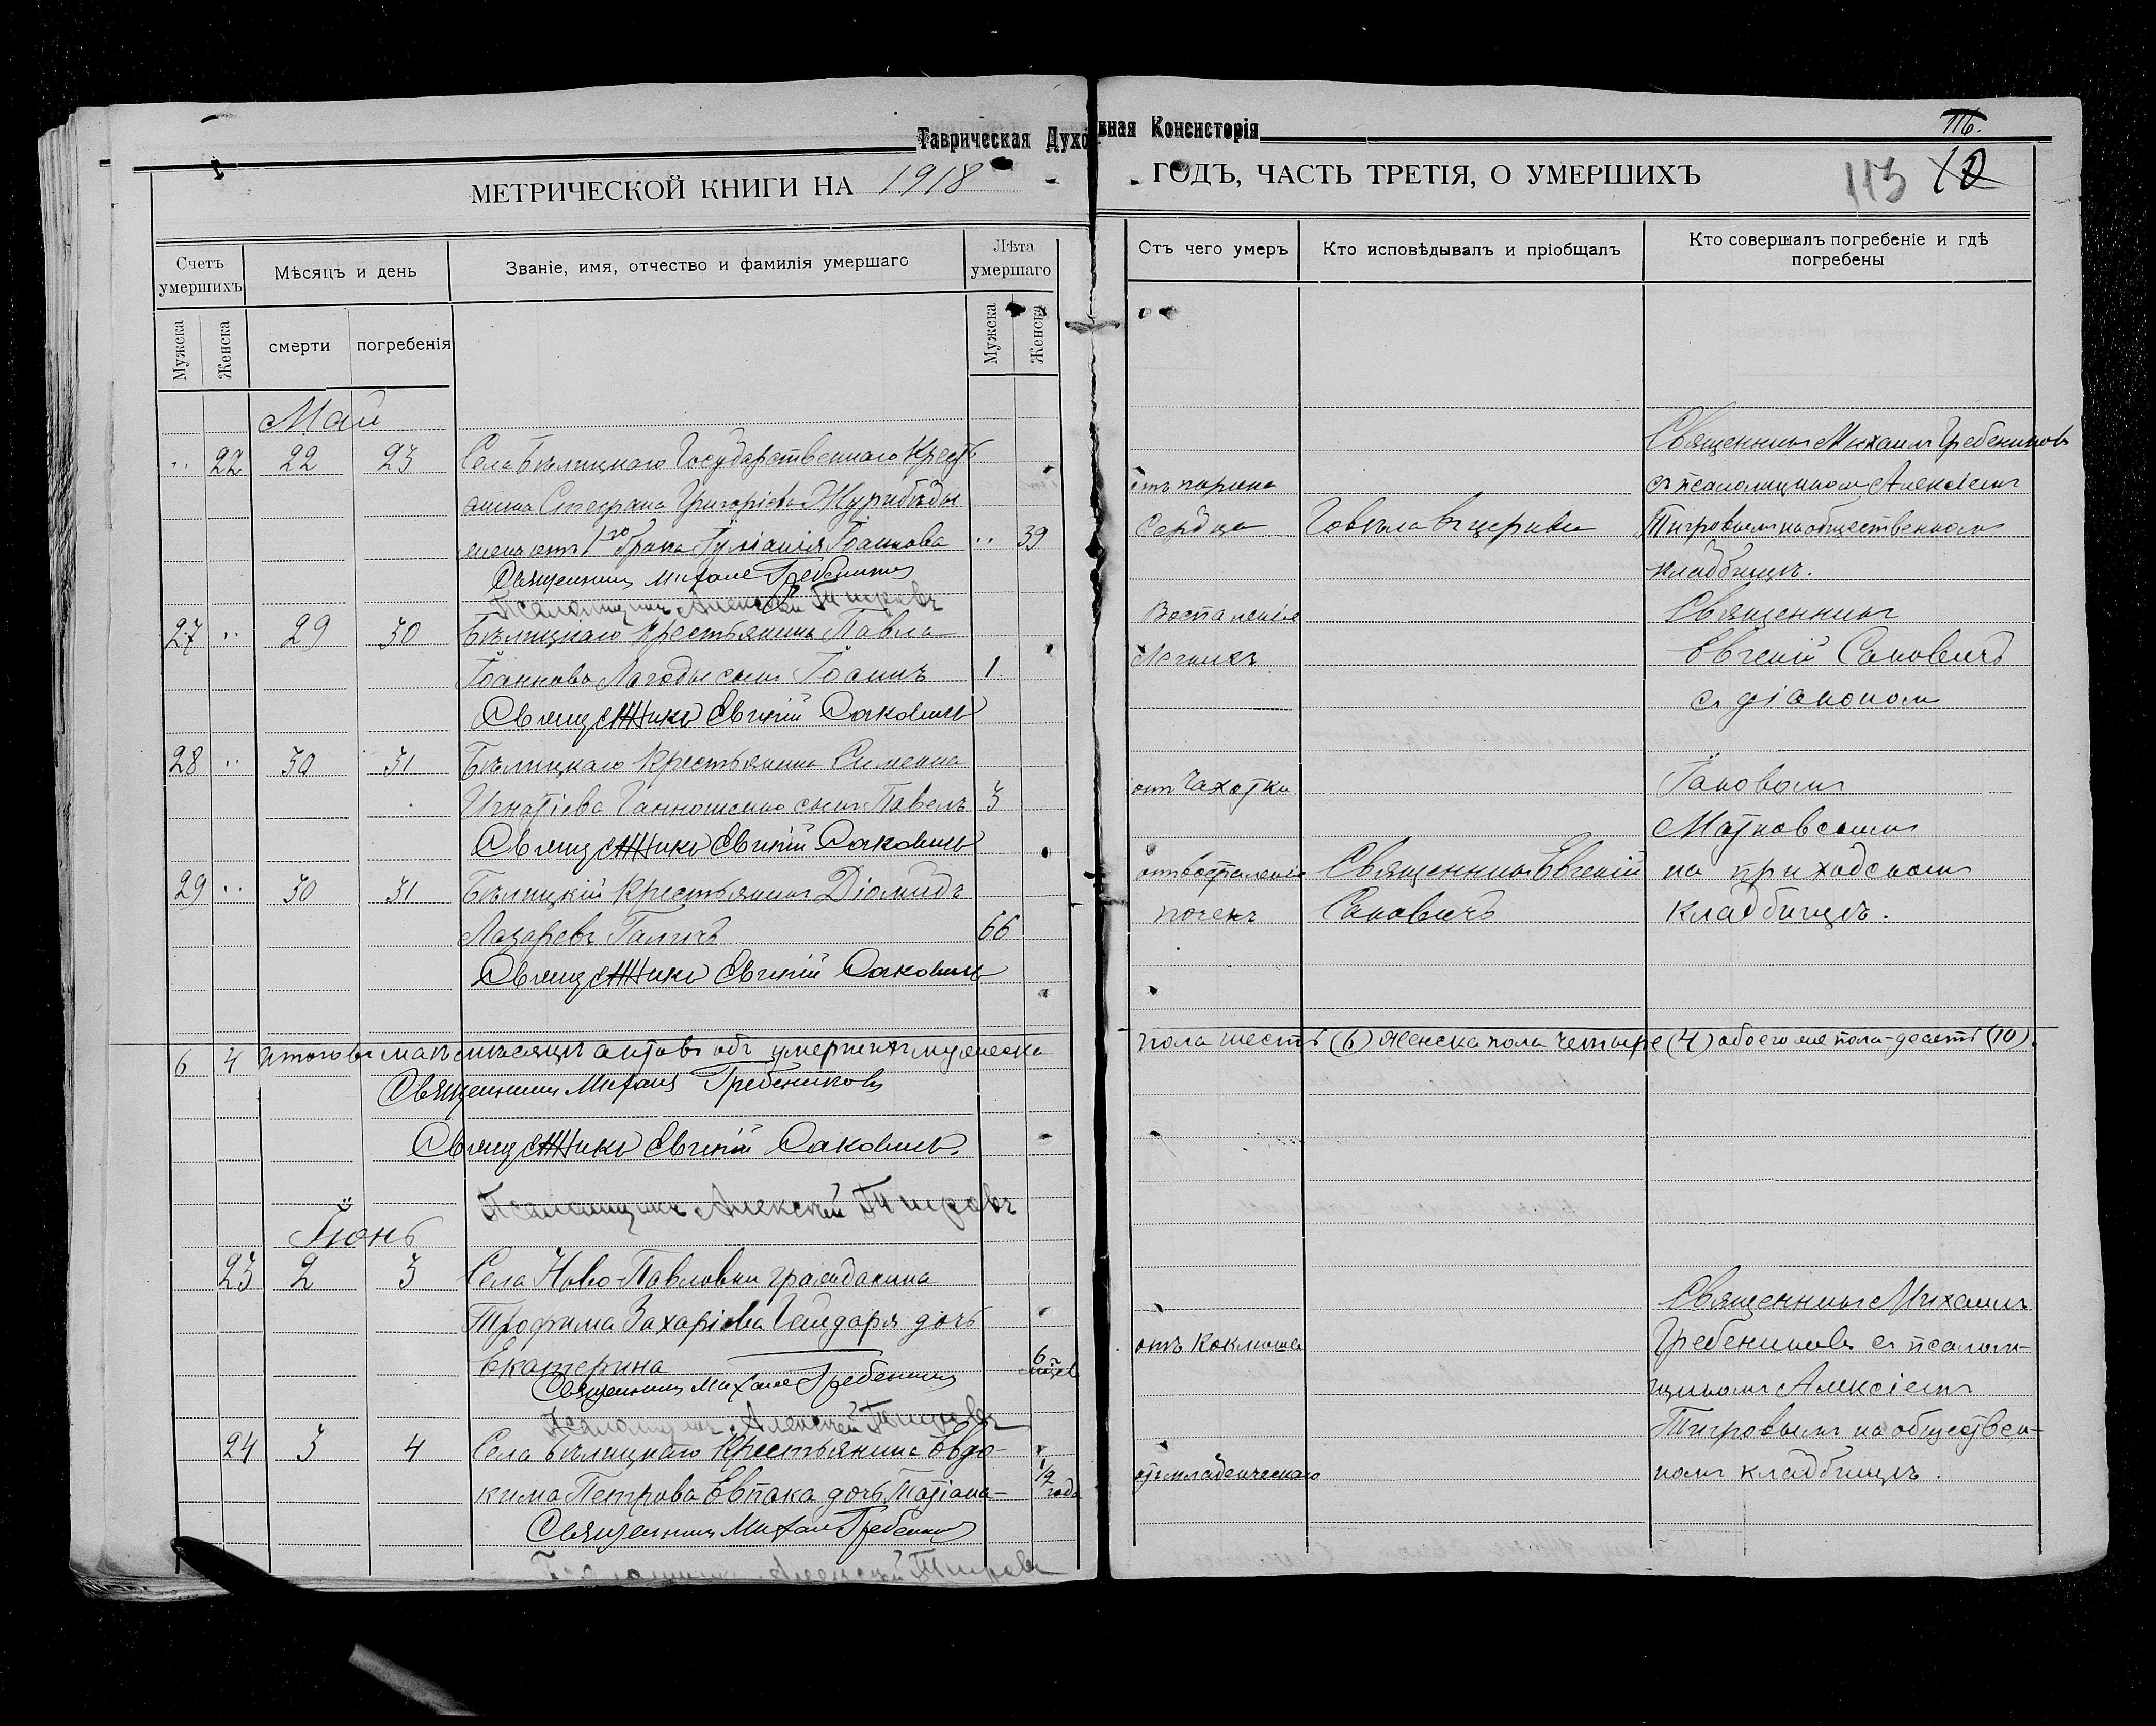 Таврическая Духовная Консисторія
ПБ.
МЕТРИЧЕСКОЙ КНИГИ НА 1918 ГОДЪ, ЧАСТЬ ТРЕТІЯ, О УМЕРШИХЪ
113 10
Счетъ умершихъ
Мѣсяцъ и день
Званіе, имя, отчество и фамилія умершаго
Лѣта умершаго
Отъ чего умеръ
Кто исповѣдывалъ и пріобщалъ
Кто совершалъ погребеніе и гдѣ погребены
Мужска
Женска
смерти
погребенія
Мужска
Женска
Май
22 22 23 Села Бѣлицкаго Государственнаго Крест
янина Стефана Григоріева Журибѣды
жена отъ 1го брака Іуліанія Іоаннова 39
Священникъ Михаилъ Гребениковъ
Псаломщикъ Алексѣй Тигровъ
отъ порока
Сердца
Говѣла въ церкви
Священникъ Михаилъ Гребениковъ
съ псаломщикомъ Алексіемъ
Тигровымъ на общественномъ
кладбищѣ.
27 29 30 Бѣлицкаго Крестьянина Павла
Іоаннова Лагоды сынъ Іоаннъ 1.
Священникъ Евгеній Саковичъ
Воспаленія
Легкихъ
Священникъ
Евгеній Саковичъ
съ діакономъ
28 30 31 Бѣлицкаго Крестьянина Симеона
Игнатіева сынъ Павелъ 3
Священникъ Евгеній Саковичъ
отъ Чахотки
Іаковомъ
29 30 31 Бѣлицкій Крестьянинъ Діомидъ
Лазаревъ 66
Священникъ Евгеній Саковичъ
отъ воспаленія
почекъ
Священникъ Евгеній
Саковичъ
на приходскомъ
кладбищѣ.
6 4 Итого въ маѣ мѣсяцѣ актовъ объ умершихъ мужеска
пола шесть (6) женска пола четыре (4) обоего же пола - десять (10).
Священникъ Михаилъ Гребениковъ
Священникъ Евгеній Саковичъ.
Псаломщикъ Алексѣй Тигровъ
Іюнь
23 2 3 Села Ново-Павловки гражданина
Трофима Захаріева Гайдаря дочь
Екатерина 6
Священникъ Михаилъ Гребениковъ
Псаломщикъ Алексѣй Тигровъ
отъ Коклюша
Священникъ Михаилъ
Гребениковъ съ псалом-
щикомъ Алексіемъ
Тигровымъ на обществен-
номъ кладбищѣ.
24 3 4 Села Бѣлицкаго Крестьянина Овдо-
кима Петрова Евпака дочь Татіана- 1/2 года
отъ младенческаго
Священникъ Михаилъ Гребениковъ
Псаломщикъ Алексѣй Тигровъ